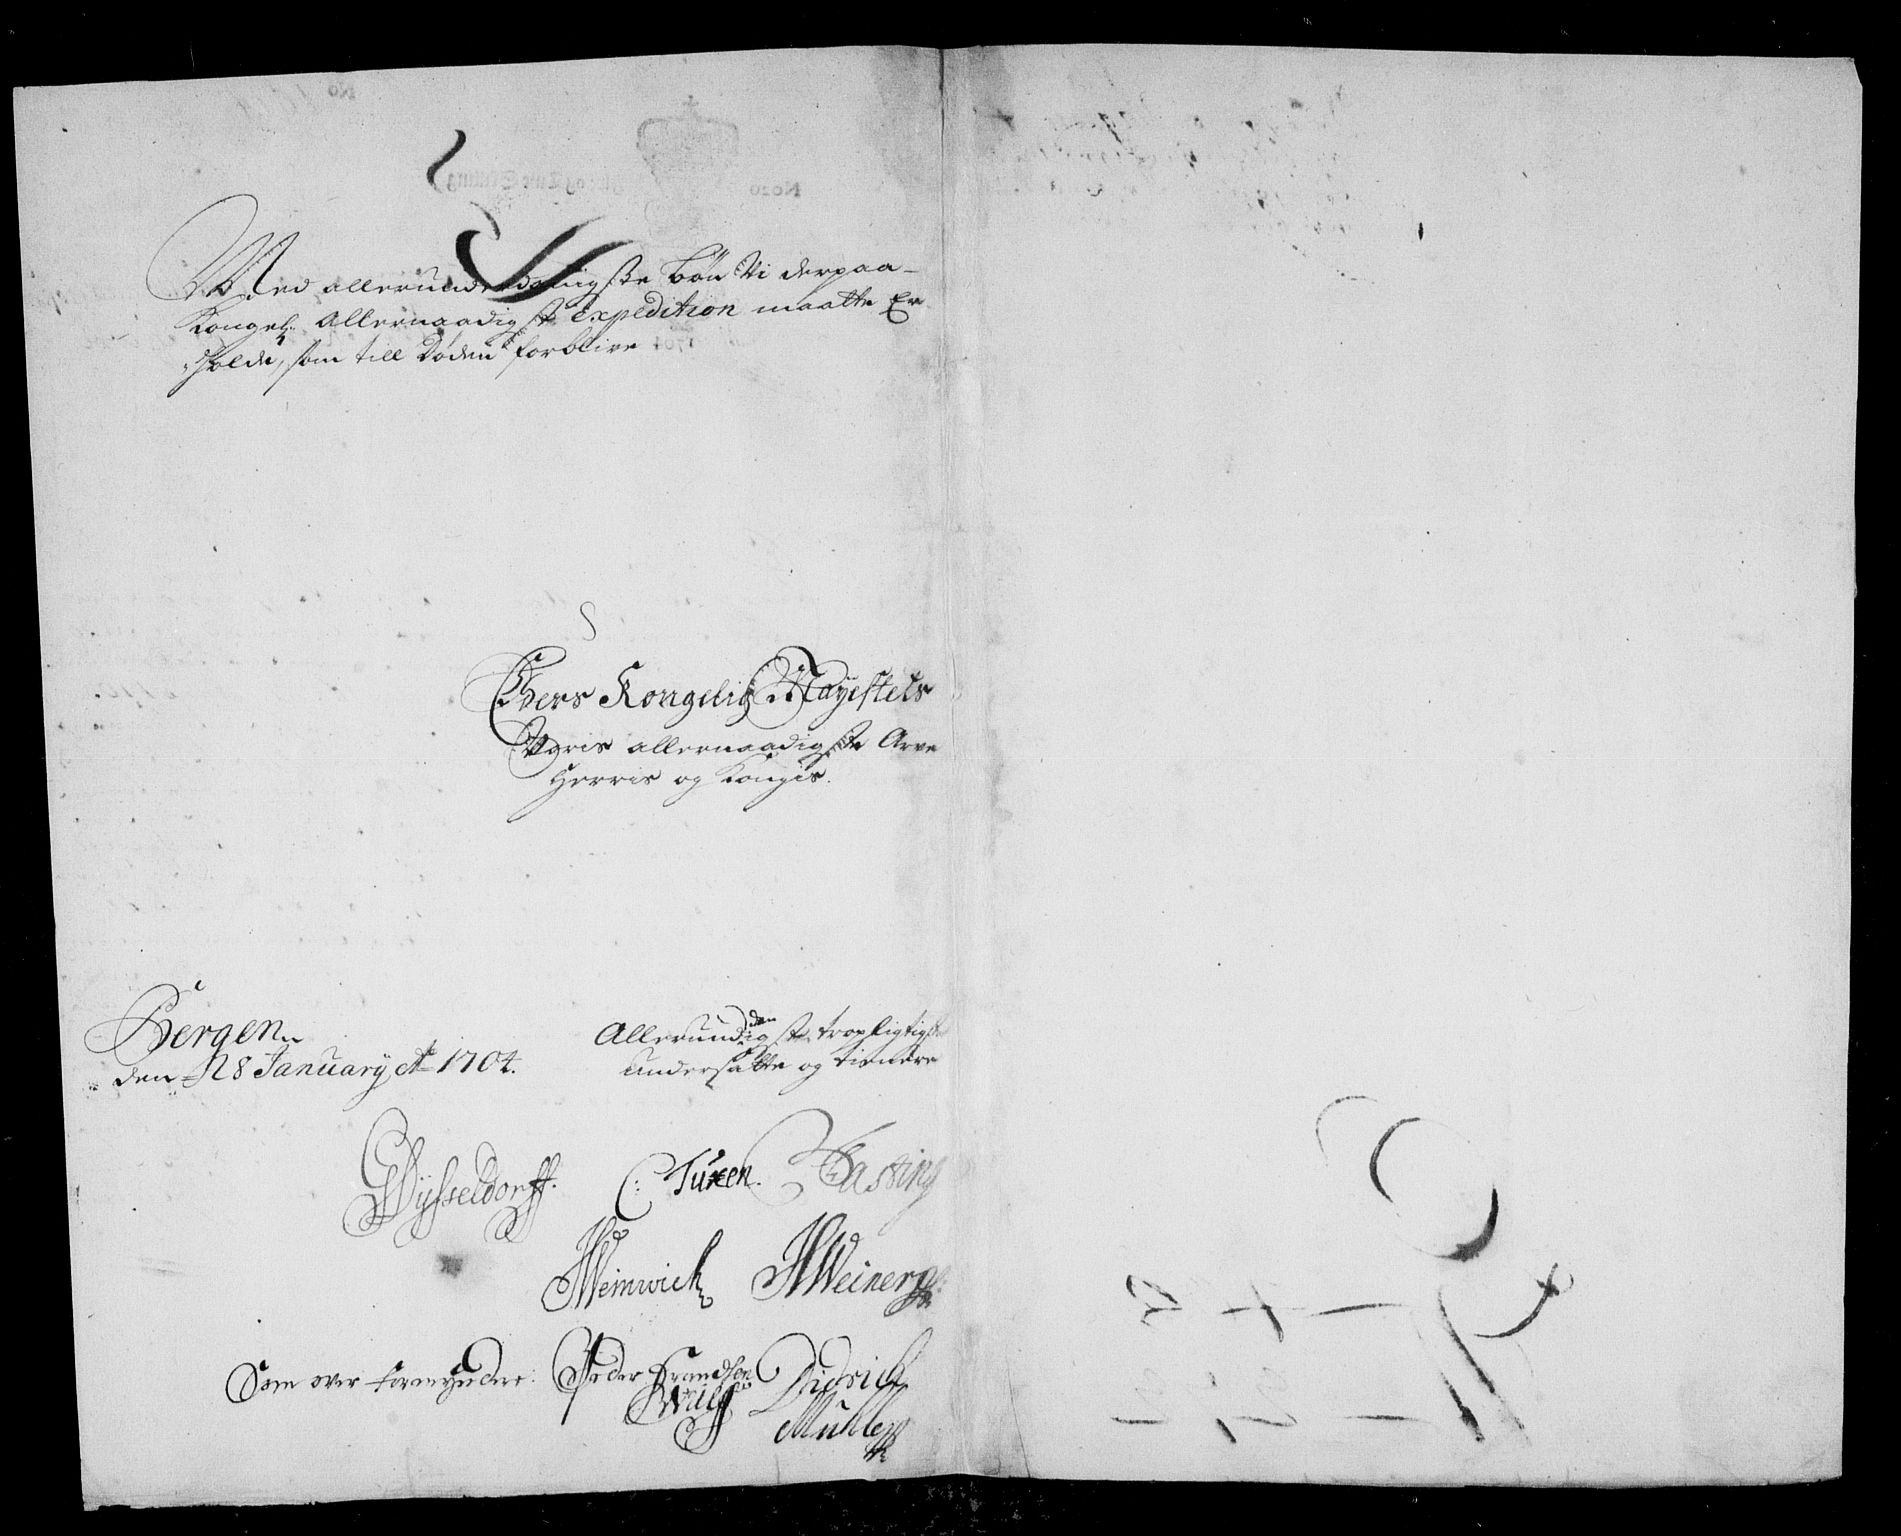 Med allerunderdanigste bön Vi derpaa
Kongel: Allernaadigst Expedition maatte Er
holde, som till Döden forblive
Eders Kongelig Mayestets
Voris allernaadigste Arve
Herris og Kongis.
Bergen
den 28 January Ao 1704.
Allerund(den)igste tropligtigste
undersatte og tienere
GWysseldorff.
C: Tuxen.
Fasting
Weinwich
HWeiner
Som over formyndere: Peder Frandsen
Wulff
Didrich
Muhlen